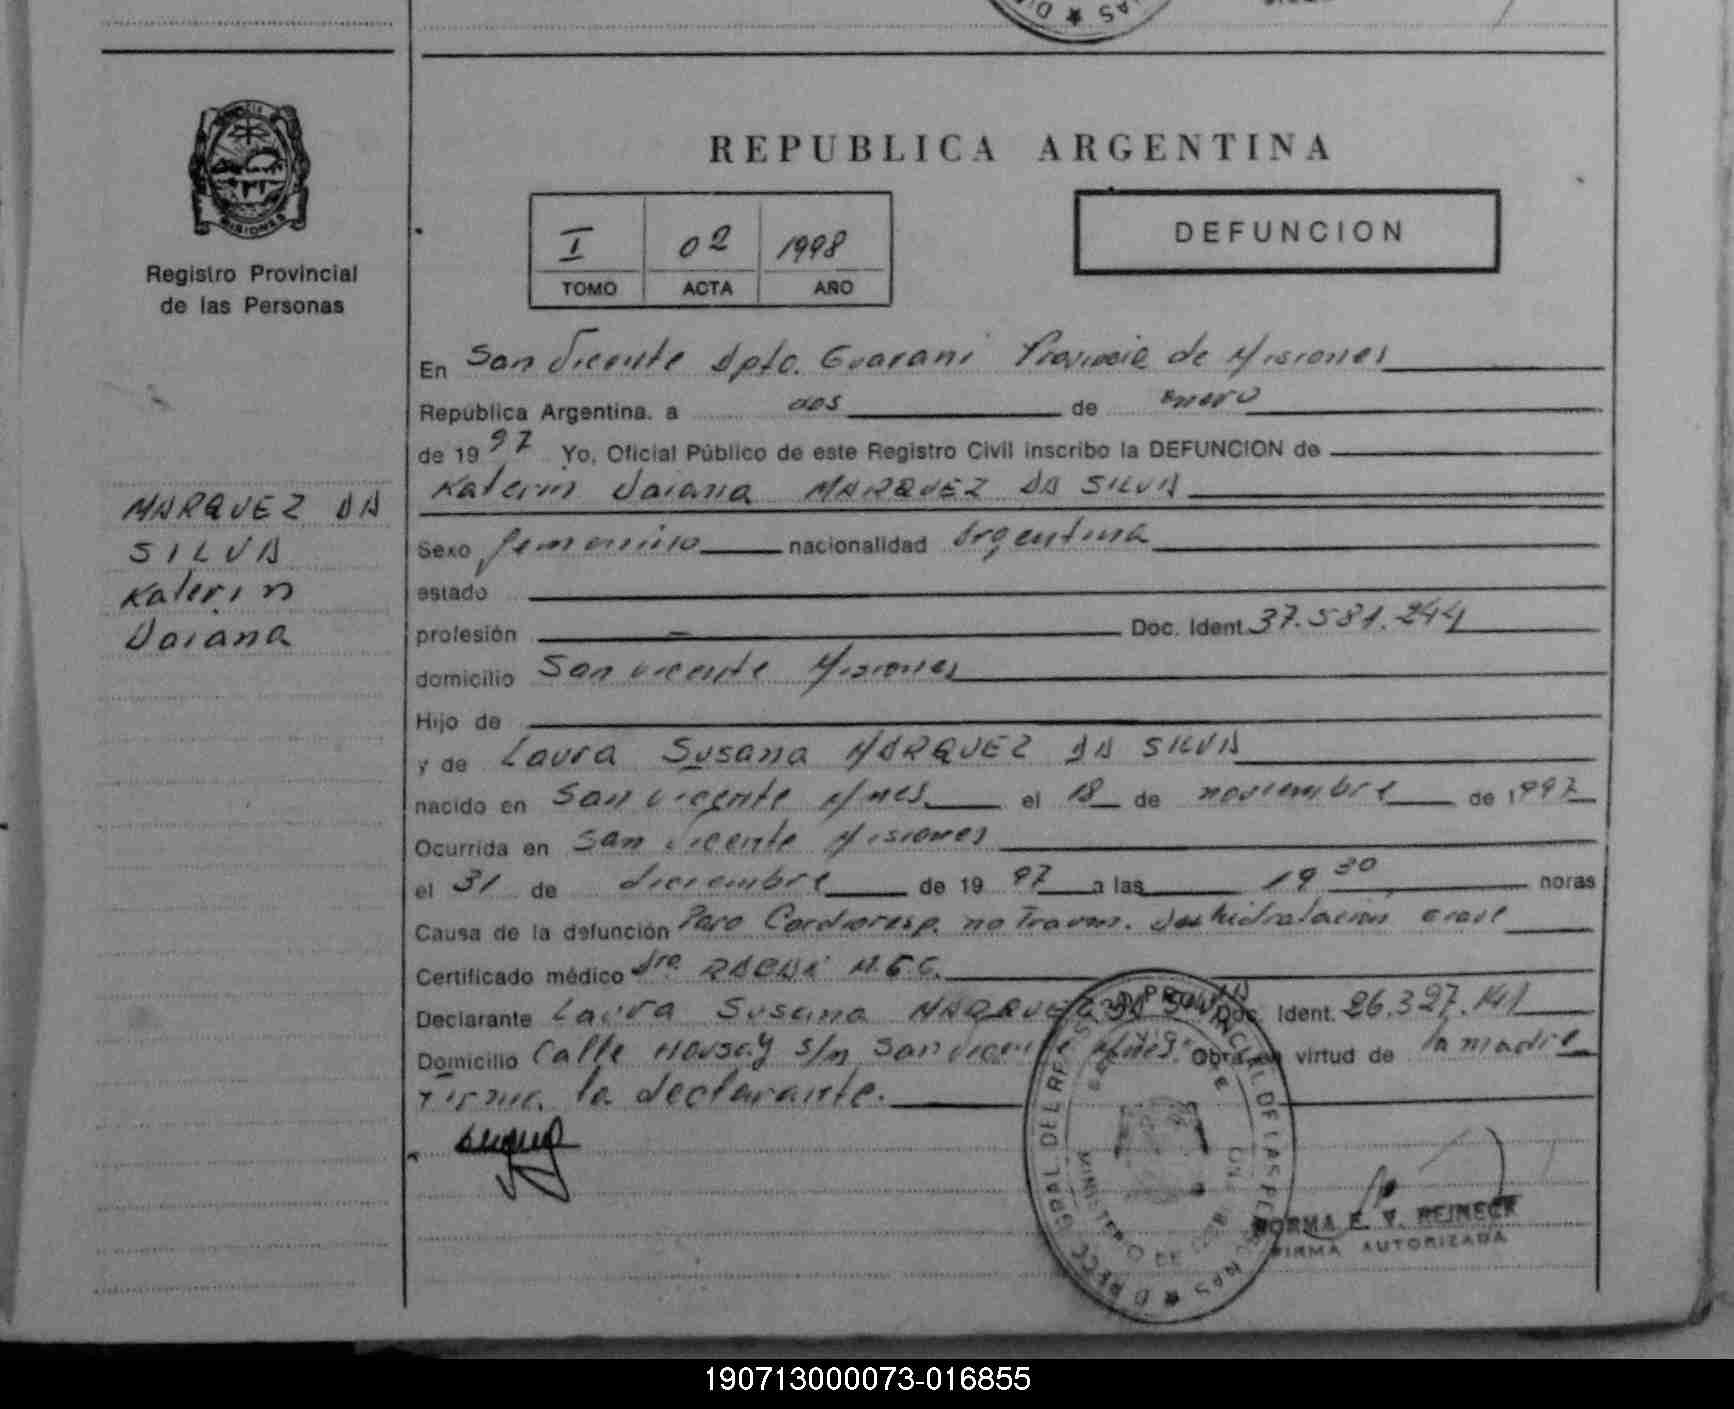 MISIONES
Registro Provincial
de las Personas
MARQUEZ DA
SILVA
Katerin
Daiana
REPUBLICA ARGENTINA
I 02 1998
TOMO ACTA AÑO
DEFUNCION
En San Vicente Dpto. Guarani Provincia de Misiones
República Argentina, a dos de enero
de 1997 Yo, Oficial Público de este Registro Civil inscribo la DEFUNCION de
Katerin Daiana MARQUEZ DA SILVA
Sexo femenino nacionalidad Argentina
estado
profesión Doc. Ident. 37.581.244
domicilio San Vicente Misiones
Hijo de
y de Laura Susana MARQUEZ DA SILVA
nacido en San Vicente Mnes el 18 de noviembre de 1997
Ocurrida en San Vicente Misiones
el 31 de diciembre de 1997 a las 19 30 horas
Causa de la defunción Paro Cardioresp. no Traum. deshidratacion grave
Certificado médico Dra.
Declarante Laura Susana MARQUEZ DA SILVA Doc. Ident. 26.327.141
Domicilio Calle Housay S/n San Vicente Mnes. Obra en virtud de la madre
Firma la declarante.
DIRECC. GRAL. DEL REGISTRO PROVINCIAL DE LAS PERSONAS
MINISTERIO DE GOBIERNO
NORMA E. V. REINECK
FIRMA AUTORIZADA
190713000073-016855